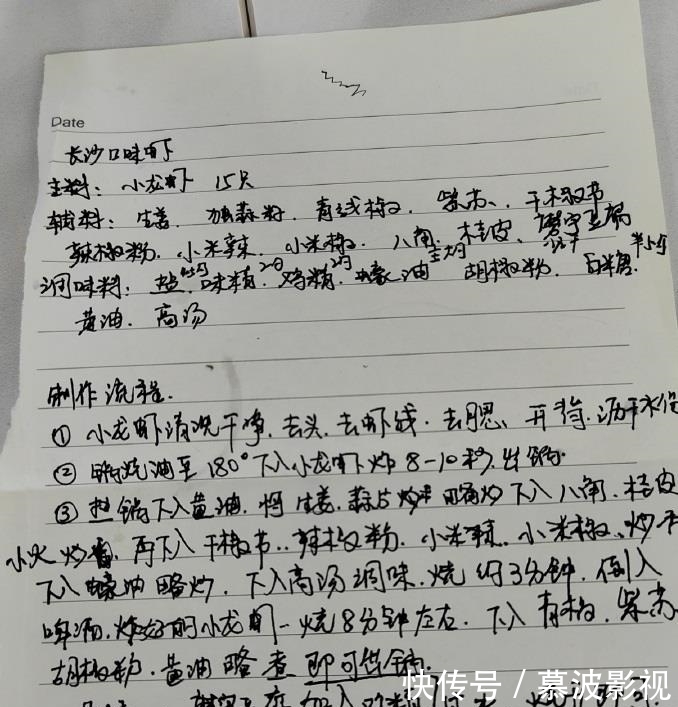 Date
长沙口味虾
主料：小龙虾 15只
辅料：生姜、独蒜籽、青线椒、紫苏、干椒节
辣椒粉、小米辣、小米椒、八角、桂皮、
调味料：盐、味精、鸡精、蚝油 胡椒粉、白糖、半小勺
黄油、高汤
制作流程.
① 小龙虾清洗干净、去头、去虾线、去腮、开背、沥干水份
② 锅烧油至180°下入小龙虾炸8-10秒出锅.
③ 热锅下入黄油、将生姜、蒜片 略炒下入八角、桂皮
小火炒香、再下入干椒节、辣椒粉、小米辣、小米椒、炒
下入蚝油略炒、下入高汤调味、烧约3分钟、倒入
啤酒、炸好的小龙虾一烧8分钟左右、下入青椒、紫苏
胡椒粉、黄油略煮即可出锅.
快传号 / 慕波影视